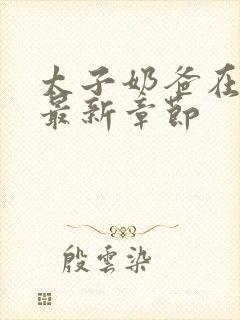 太子奶爸在
最新章節
殷雲染